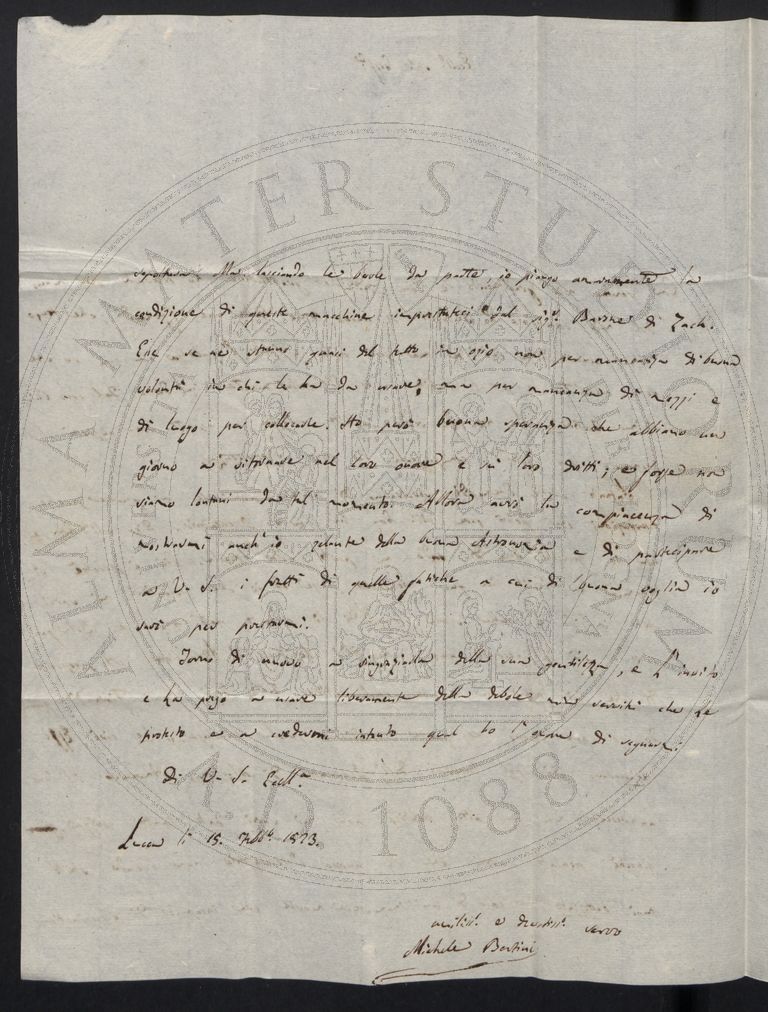 Ma lasciando le burle da parte io piango amaramente la
condizione di queste macchine importateci dal Sigr. Barone di Zach.
Esse se ne stanno quasi del tutto in ozio non per mancanza di buona
volontà in chi le ha da usare, ma per mancanza di mezzi e
di luogo per collocarle. Ho però buona speranza che abbiano un
giorno a ritornare nel loro onore e ne loro dritti; e forse non
siamo lontani da tal momento. Allora avrò la compiacenza di
mostrarmi anch'io zelante della buona Astronomia e di partecipare
a V. S. i frutti di quelle fatiche a cui di buona voglia io
sarò per prestarmi.
Torno di nuovo a ringraziarla della sua gentilezza, e l'invito
e La prego a usare liberamente della debole mia servitù che Le
protesto e a credermi intanto qual ho l'onore di segnarmi
di V. S. Eccll.a
Lucca li 15. Febb.o 1823.
umiliss.o e devotiss.o servo
Michele Bertini
ALMA MATER STUDIORUM
A.D. 1088